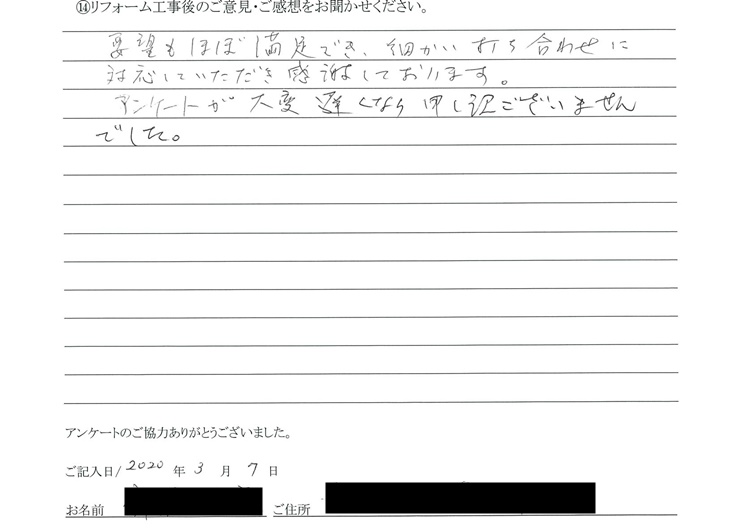 ⑭リフォーム工事後のご意見・ご感想をお聞かせください。
要望もほぼ満足でき、細かい打ち合わせに
対応していただき感謝しております。
アンケートが大変遅くなり申し訳ございません
でした。
アンケートのご協力ありがとうございました。
ご記入日/2020年3月7日
お名前 ご住所